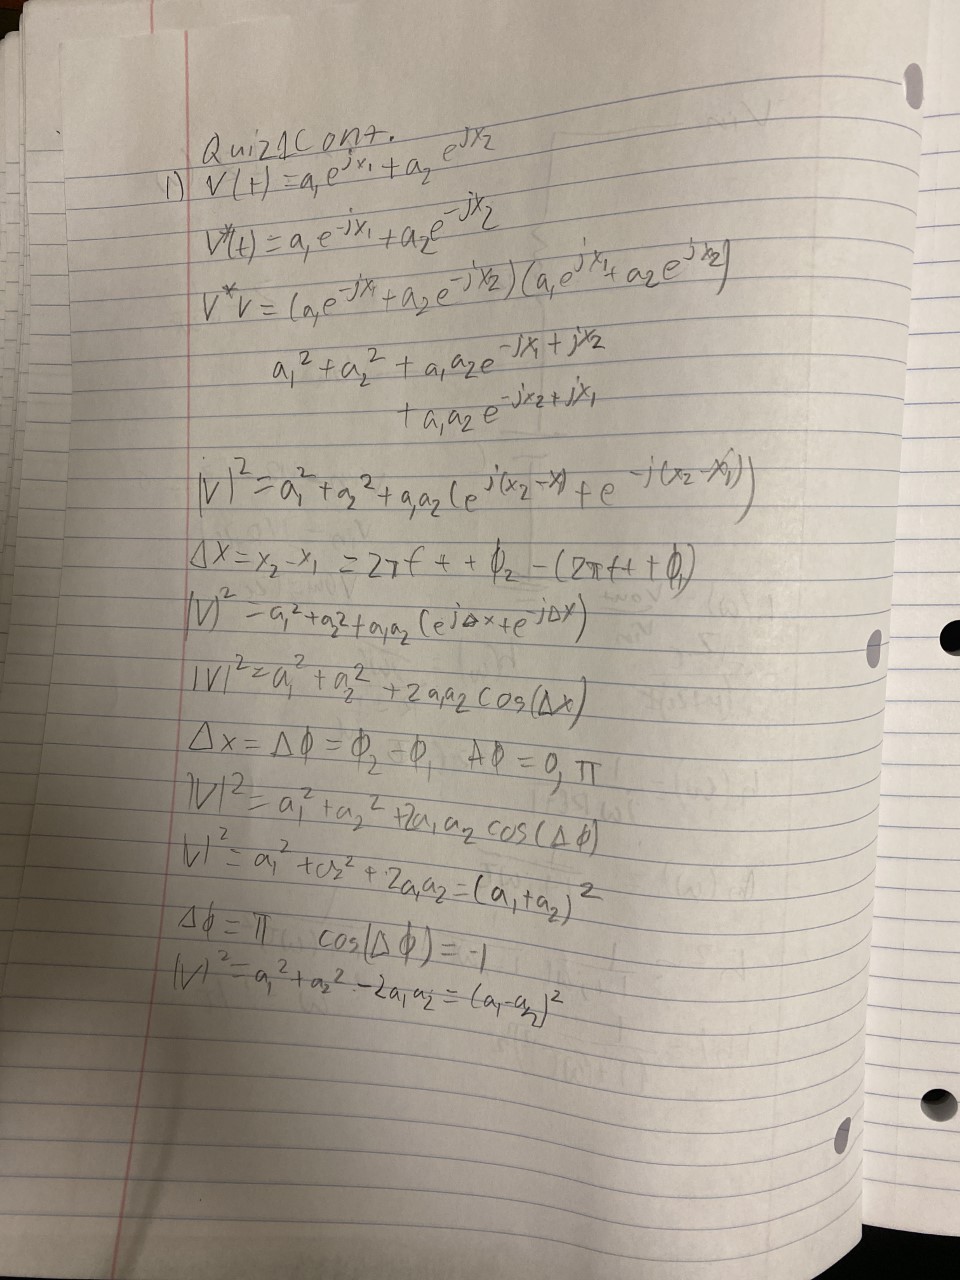 Quiz 1 Cont.
1) V(t) = a₁e^{jx₁} + a₂ e^{jx₂}
V*(t) = a₁e^{-jx₁} + a₂e^{-jx₂}
V*V = (a₁e^{-jx₁} + a₂e^{-jx₂})(a₁e^{jx₁} + a₂e^{jx₂})
a₁² + a₂² + a₁a₂e^{-jx₁+jx₂}
+ a₁a₂e^{-jx₂+jx₁}
|V|² = a₁² + a₂² + a₁a₂(e^{j(x₂-x)} + e^{-j(x₂-x₁)})
Δx = x₂-x₁ = 2πft + ϕ₂ - (2πft + ϕ₁)
|V|² = a₁² + a₂² + a₁a₂(e^{jΔx} + e^{-jΔx})
|V|² = a₁² + a₂² + 2a₁a₂cos(Δx)
Δx = Δϕ = ϕ₂ - ϕ₁ Δϕ = 0, π
|V|² = a₁² + a₂² + 2a₁a₂ cos(Δϕ)
|V|² = a₁² + a₂² + 2a₁a₂ = (a₁+a₂)²
Δϕ = π cos(Δϕ) = -1
|V|² = a₁² + a₂² - 2a₁a₂ = (a₁-a₂)²